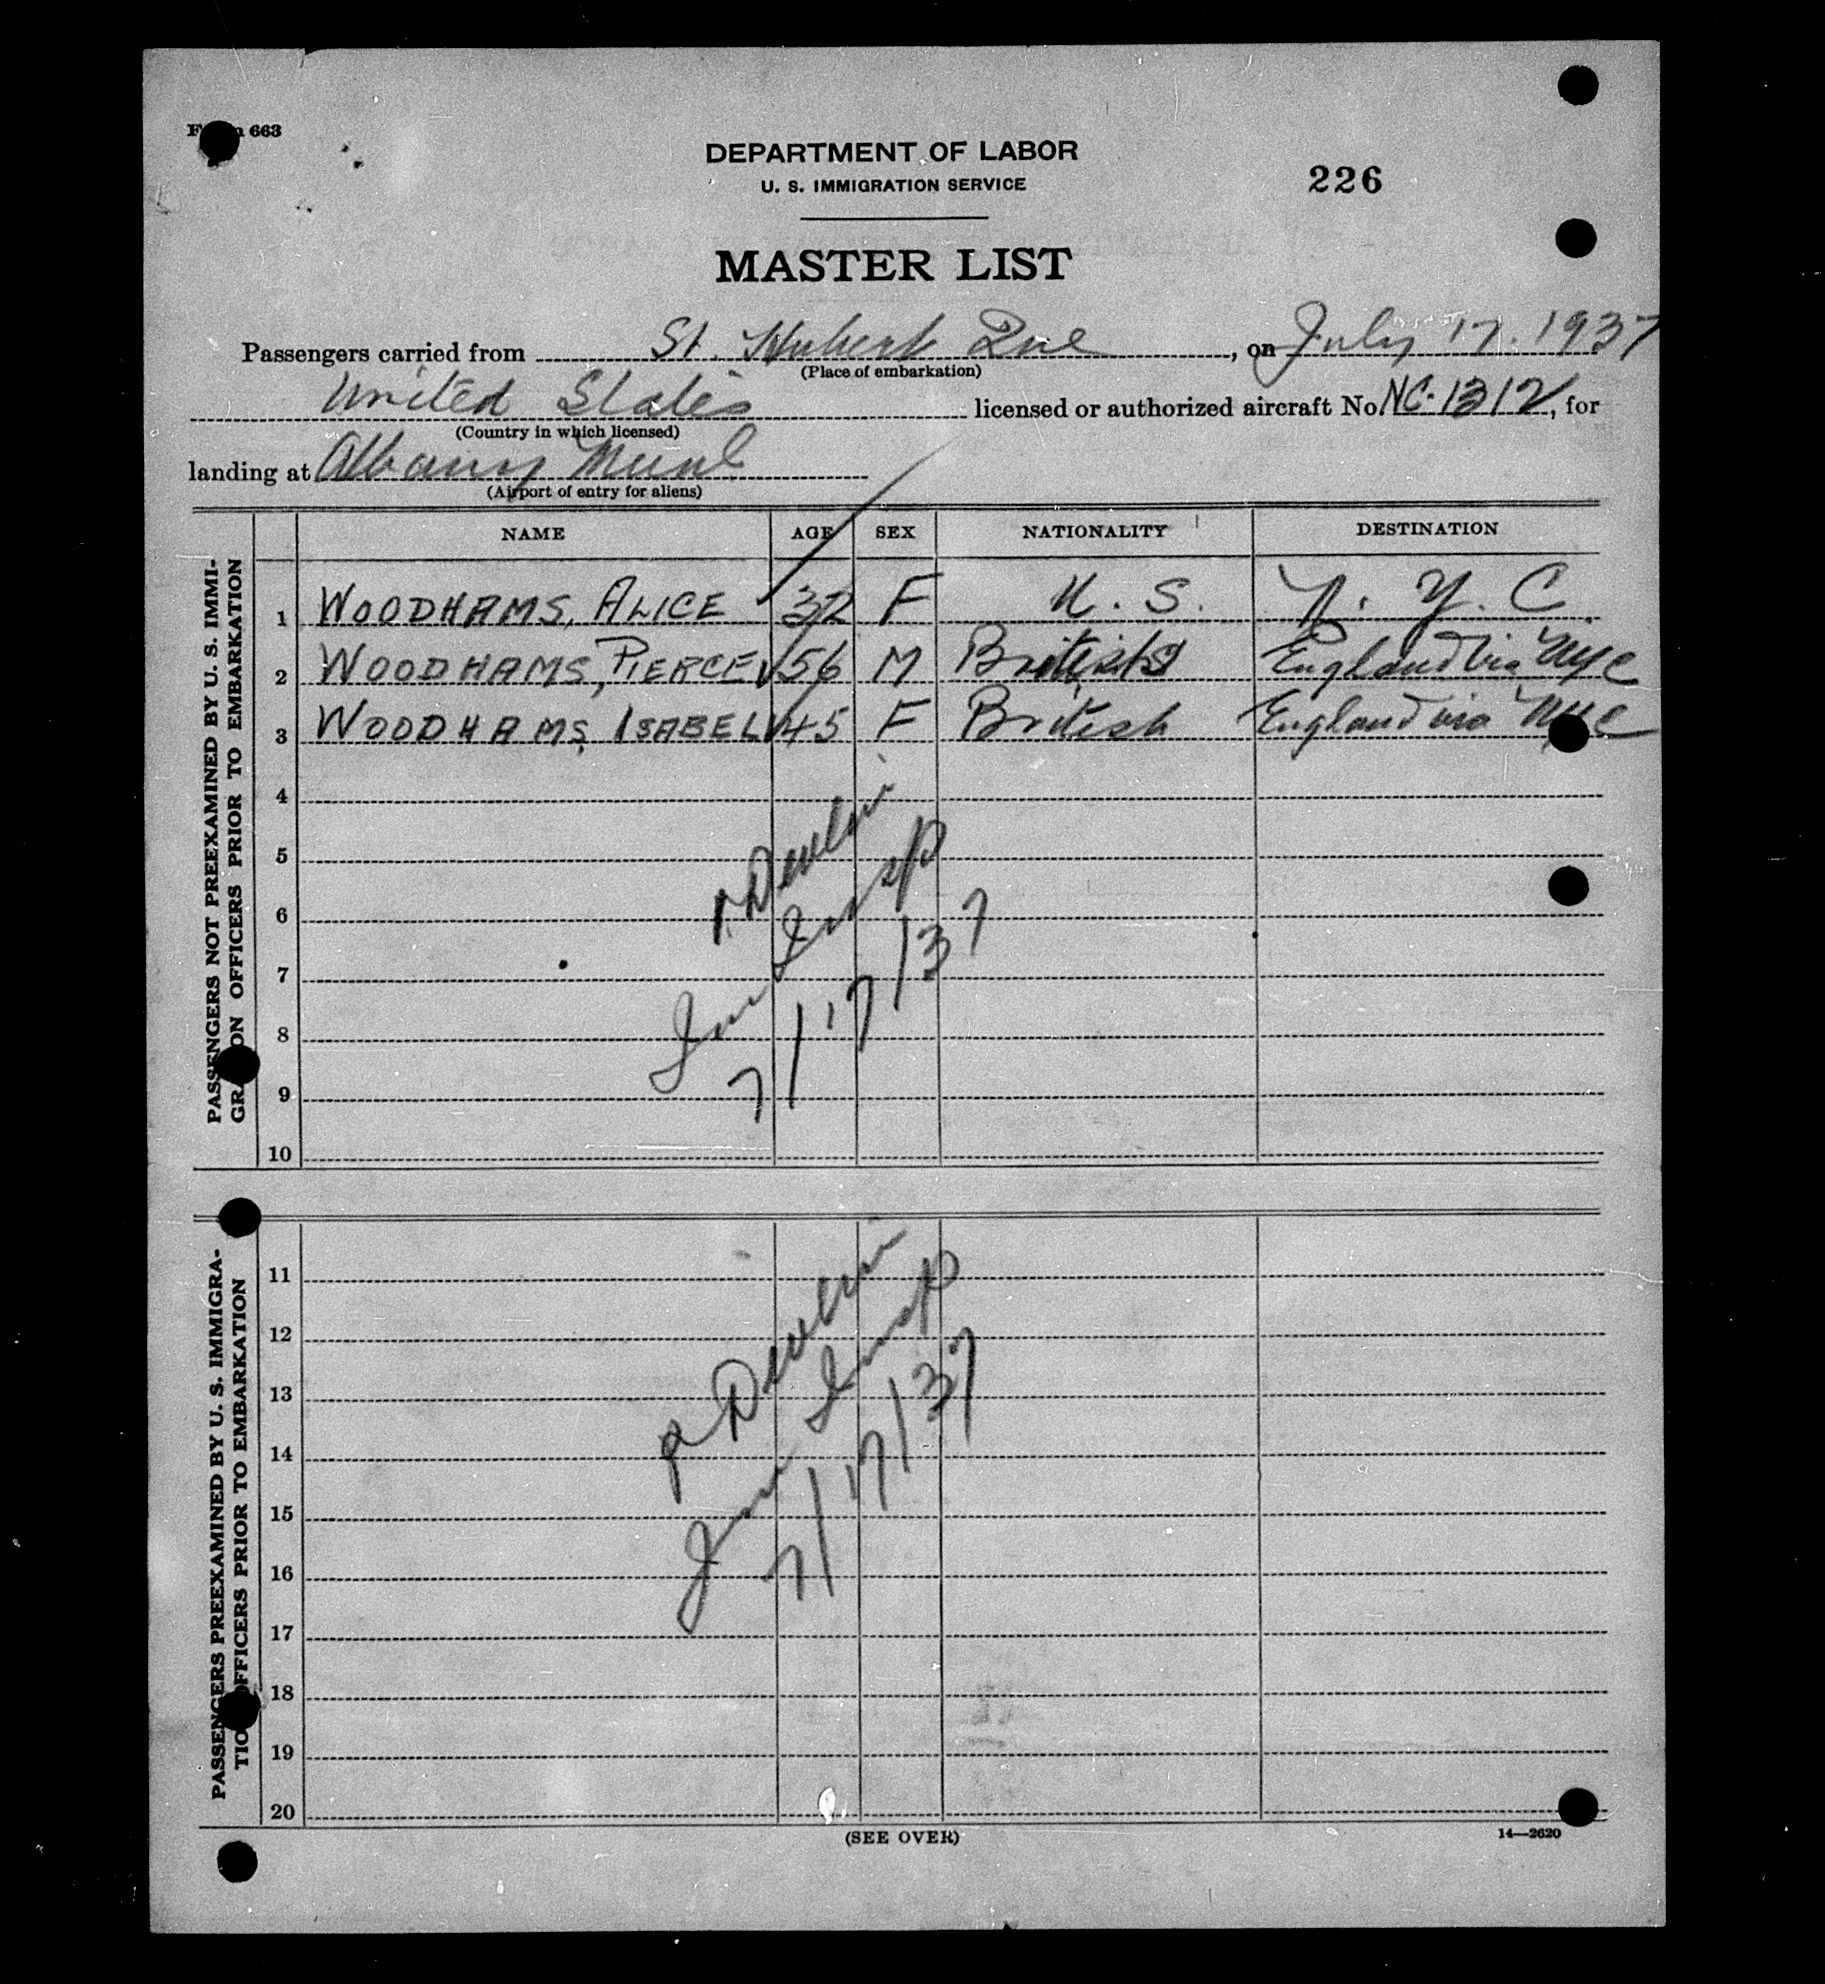 Form 663
DEPARTMENT OF LABOR
U. S. IMMIGRATION SERVICE
226
MASTER LIST
Passengers carried from St. Hubert Que, on July 17. 1937
(Place of embarkation)
United States licensed or authorized aircraft No. NC-1312, for
(Country in which licensed)
landing at Albany Munl
(Airport of entry for aliens)
NAME AGE SEX NATIONALITY DESTINATION
PASSENGERS NOT PREEXAMINED BY U. S. IMMI-
GRATION OFFICERS PRIOR TO EMBARKATION
1 WOODHAMS, ALICE 32 F U. S. N. Y. C.
2 WOODHAMS, PIERCE 56 M British England via NYC
3 WOODHAMS, ISABEL 45 F British England via NYC
4
5
6
7
8
9
10
P Devlin
Imm Insp
7/17/37
PASSENGERS PREEXAMINED BY U. S. IMMIGRA-
TION OFFICERS PRIOR TO EMBARKATION
11
12
13
14
15
16
17
18
19
20
P Devlin
Imm Insp
7/17/37
(SEE OVER)
14—2620